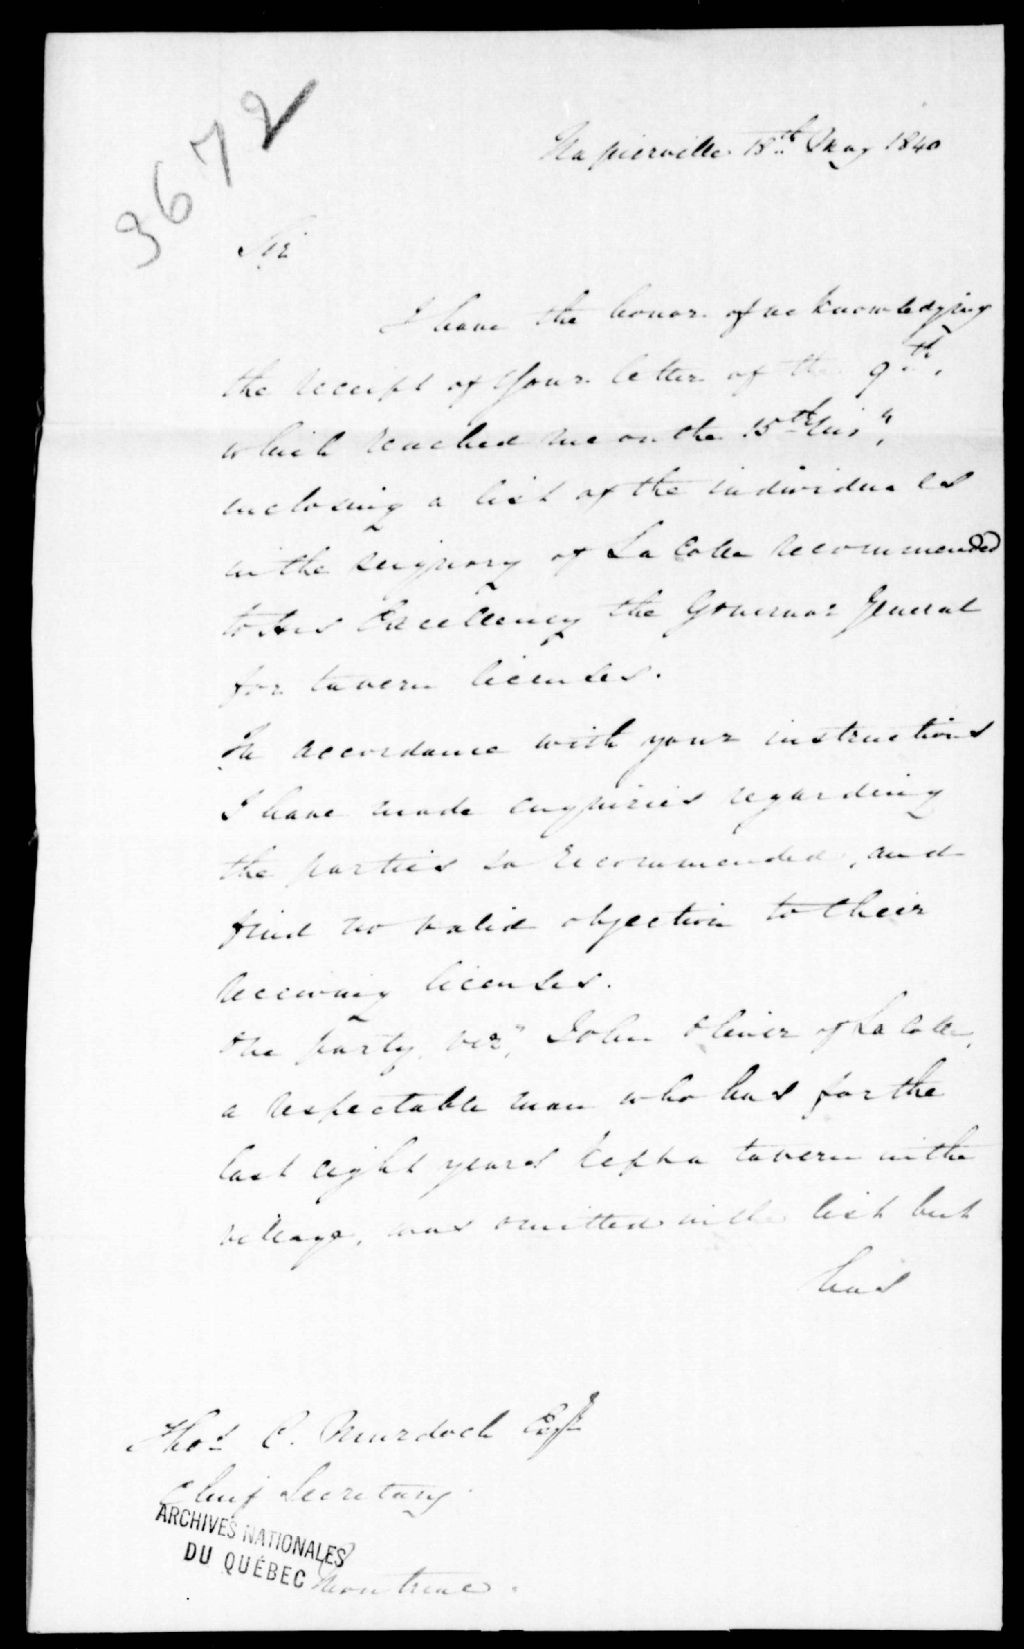 3672
Napierville 18th May 1840
Sir
I have the honor of acknowledging
the receipt of your letter of the 9th,
which reached me on the 15th Ins",
inclosing a list of the individuals
in the seignory of La Colle recommended
to His Excellency the Governor General
for tavern licenses.
In accordance with your instructions
I have made enquiries regarding
the parties so recommended, and
find no valid objection to their
receiving licenses.
One party, viz", John Oliver of La Colle,
a respectable man who has for the
last eight years kept a tavern in the
village, was omitted in the list but
has
Thos C. Murdoch Esqr
Chief Secretary
ARCHIVES NATIONALES
DU QUÉBEC
Montreal.